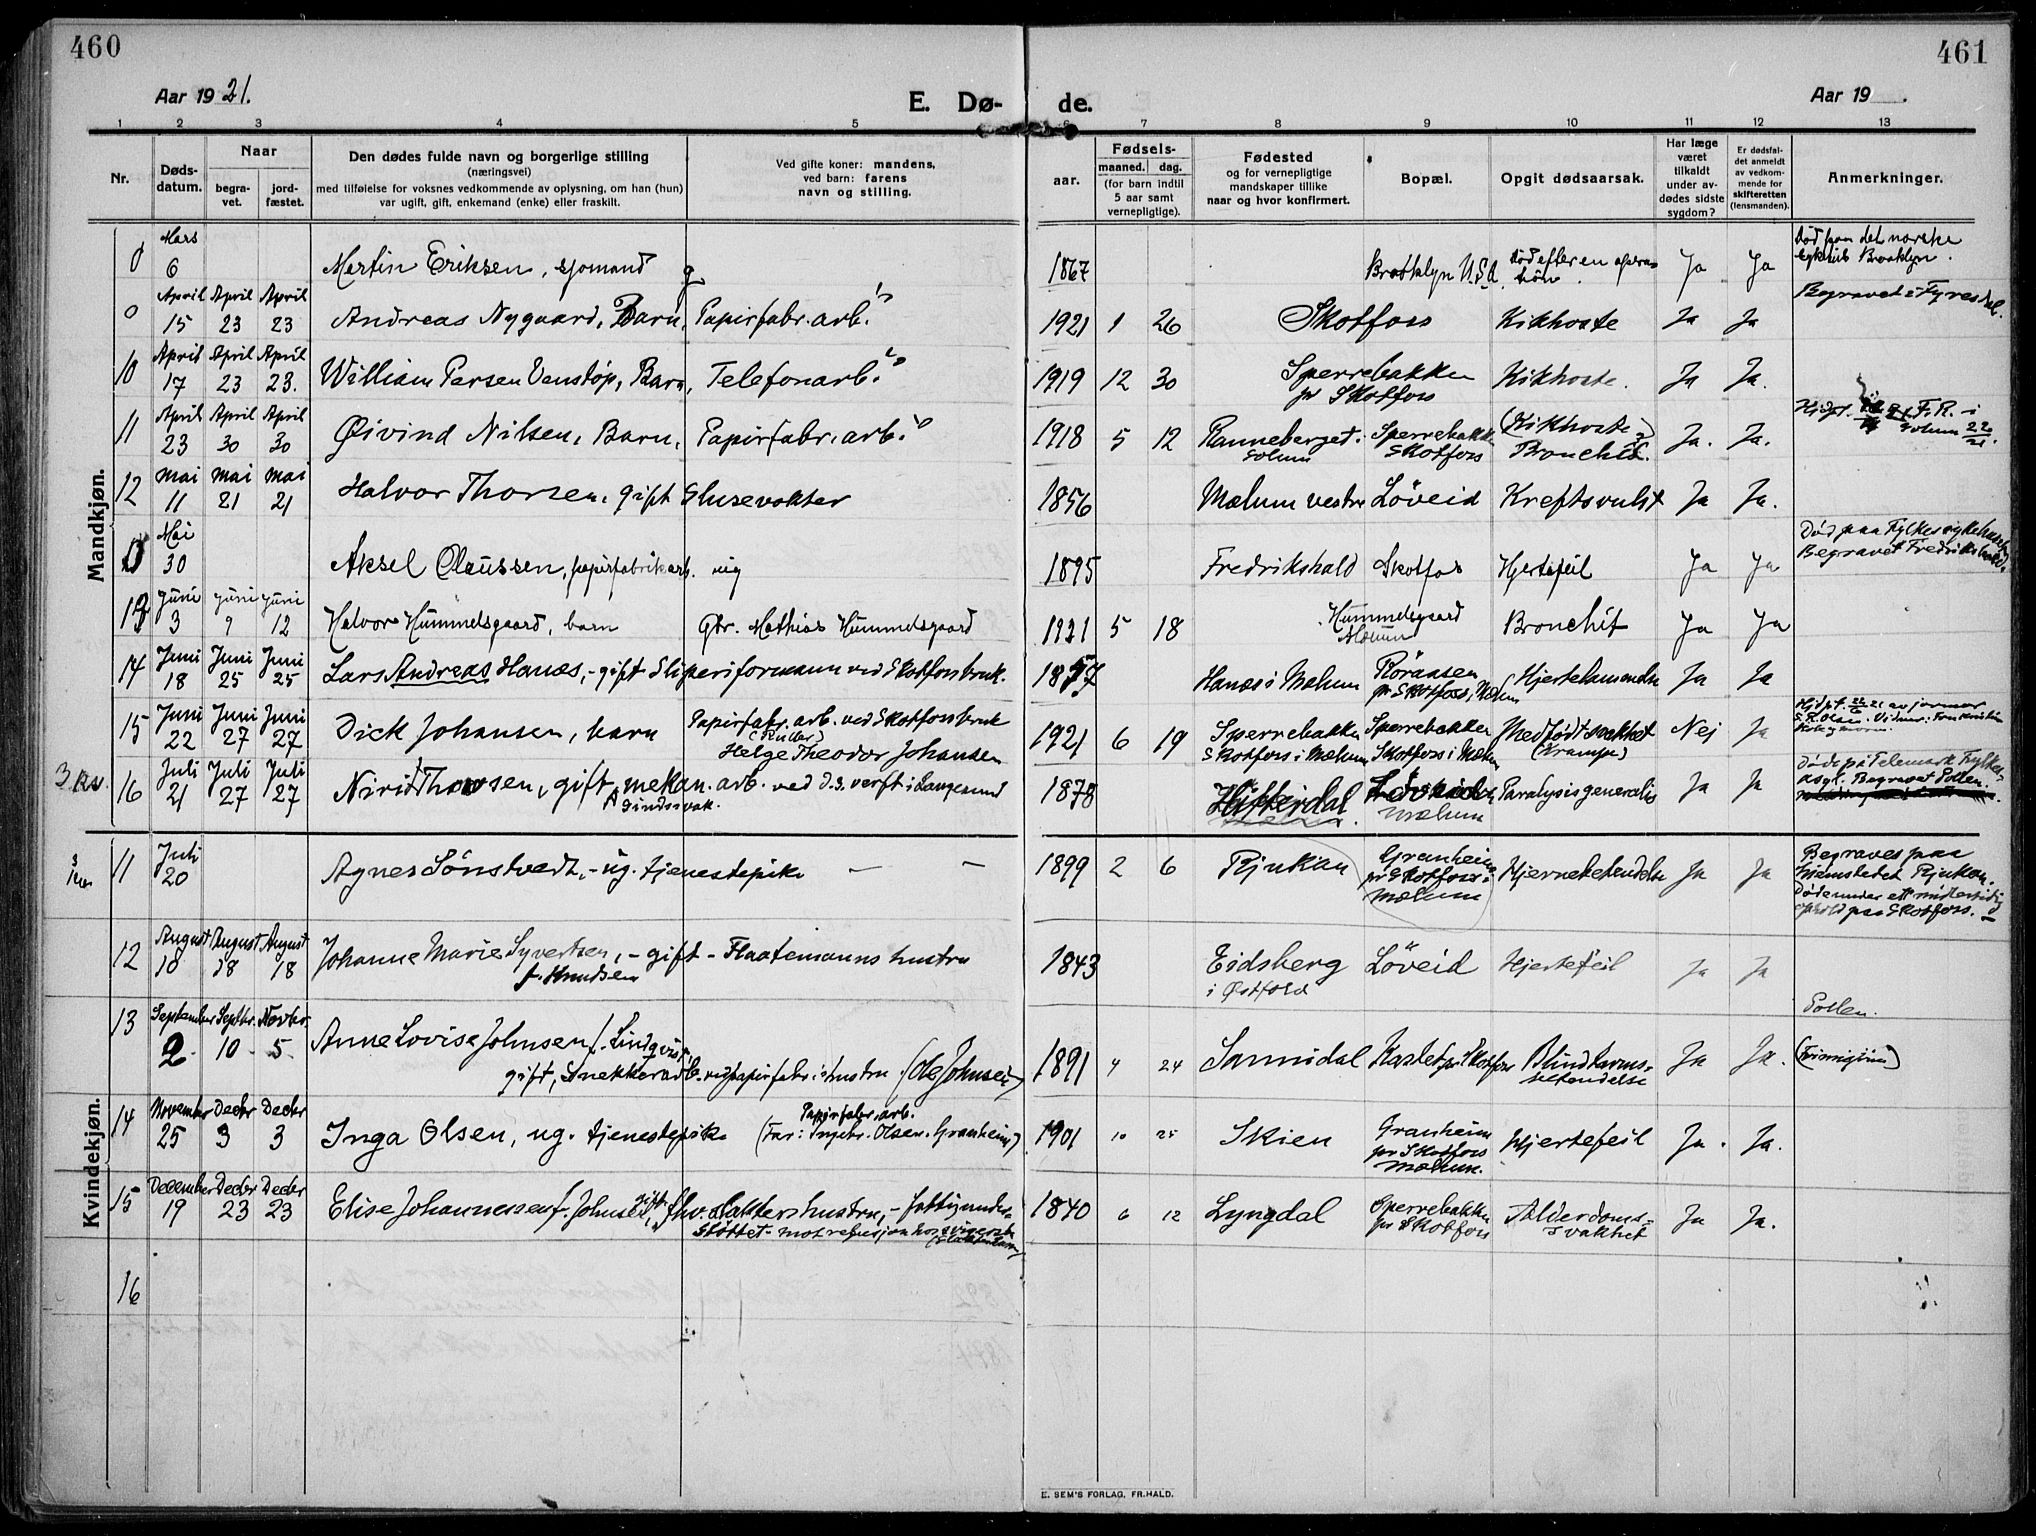 460
461
Aar 1921.
E. Dø- de.
Aar 19 .
1 2 3 4 5 6 7 8 9 10 11 12 13
Nr.
Døds-
datum.
Naar
begra-
vet.
jord-
fæstet.
Den dødes fulde navn og borgerlige stilling
(næringsvei)
med tilføielse for voksnes vedkommende av oplysning, om han (hun)
var ugift, gift, enkemand (enke) eller fraskilt.
Ved gifte koner: mandens,
ved barn: farens
navn og stilling.
aar.
Fødsels-
maaned. dag.
(for barn indtil
5 aar samt
vernepligtige).
Fødested
og for vernepligtige
mandskaper tillike
naar og hvor konfirmert.
Bopæl.
Opgit dødsaarsak.
Har læge
været
tilkaldt
under av-
dødes sidste
sygdom?
Er dødsfal-
det anmeldt
av vedkom-
mende for
skifteretten
(lensmanden).
Anmerkninger.
Mandkjøn.
0 Mars 6 Martin Eriksen, sjømand g 1867 Brooklyn U.S.A. Død efter en opera- tion. Ja Ja
Død paa det norske
sykehus Brooklyn.
0 April 15 April 23 April 23 Andreas Nygaard, Barn, Papirfabr. arb. 1921 1 26 Skotfoss Kikhoste Ja Ja
Begravet i Fyresdal.
10 April 17 April 23 April 23. William Persen Venstøp, Barn, Telefonarb. 1919 12 30 Sperrebakken
pr Skotfoss Kikhoste. Ja Ja.
11 April 23 April 30 April 30 Øivind Nilsen, Barn, Papirfabr. arb. 1918 5 12 Ranneberget.
Solum Sperrebakk.
Skotfoss (Kikhoste)
Bronchit. Ja. Ja.
F.R. i
Solum
12 Mai 11 Mai 21 Mai 21 Halvor Thorsen, gift Slusevokter 1856 Mælum vestre Löveid Kreftsvulst Ja Ja.
0 Mai 30 Aksel Claussen, papirfabrikarb. ug 1895 Fredrikshald Skotfos Hjertefeil Ja Ja
Død paa Fylkessykehuset
Begravet Fredrikshald.
13 Juni 3 Juni 9 Juni 12 Halvor Hummelsgaard, barn Gbr. Mathias Hummelsgaard 1921 5 18 Hummelsgaard
Mælum Bronchit Ja Ja
14 Juni 18 Juni 25 Juni 25 Lars Andreas Hanæs, - gift Sliperiformann ved Skotfossbruk. 1857 Hanæs i Mælum Røraasen
pr Skotfoss i Mælum Hjertelammelse Ja Ja
15 Juni 22 Juni 27 Juni 27 Dick Johansen, barn Papirfabr. arb. ved Skotfossbruk
(Ruller)
Helge Theodor Johansen 1921 6 19 Sperrebakken
Skotfoss i Mælum Sperrebakken
Skotfoss i Mælum Medfødt svakhet
(Krampe) Nej Ja
Hjdpt. 22/6 21 av jormor
3 Kv.
16 Juli 21 Juli 27 Juli 27 Nirid Thorsen, gift, mekan. arb. ved D.S. verft i Langesund
Sindssvak. 1878 Hitterdal Løveid
Mælum Paralysis generalis Ja Ja
Døde på Telemark Fylkes-
asyl. Begravet Pollen.
Kvindekjøn.
11 Juli 20 Agnes Sønstvedt, - ug. tjenestepike — — 1899 2 6 Rjukan Granheim
pr Skotfoss i
Mælum Hjernebetendelse Ja Ja
Begraves paa
hjemstedet Rjukan.
Døde under ett midlertidig
ophold paa Skotfoss.
12 August 10 August 18 August 18 Johanne Marie Syvertsen, - gift - Flaatemanns hustru
f. Knudsen 1843 Eidsberg
i Østfold Löveid Hjertefeil Ja Ja
13 September 2 Septbr. 10 Novbr. 5 Anne Lovise Johnsen f. Lindqvist,
gift, Snekkerarb. ved papirfabr. s hustru (Ole Johnsen) 1891 4 24 Sannidal pr. Skotfoss Blindtarms-
betendelse Ja Ja.
Pollen.
14 November 25 Decbr 3 Decbr 3 Inga Olsen, ug. tjenestepike Papirfabr. arb.
(Far: Ingebr. Olsen. Granheim) 1901 10 25 Skien Granheim
pr Skotfoss
Mælum. Hjertefeil Ja. Ja.
15 December 19 Decbr 23 Decbr 23 Elise Johannessen f. Johnsen, gift, fhv. slakters hustru, - fattigunder-
støttet - mot refusjon hos 1840 6 12 Lyngdal Sperrebakken
pr Skotfoss Alderdoms-
svakhet Ja Ja.
16
E. SEM'S FORLAG, FR.HALD.